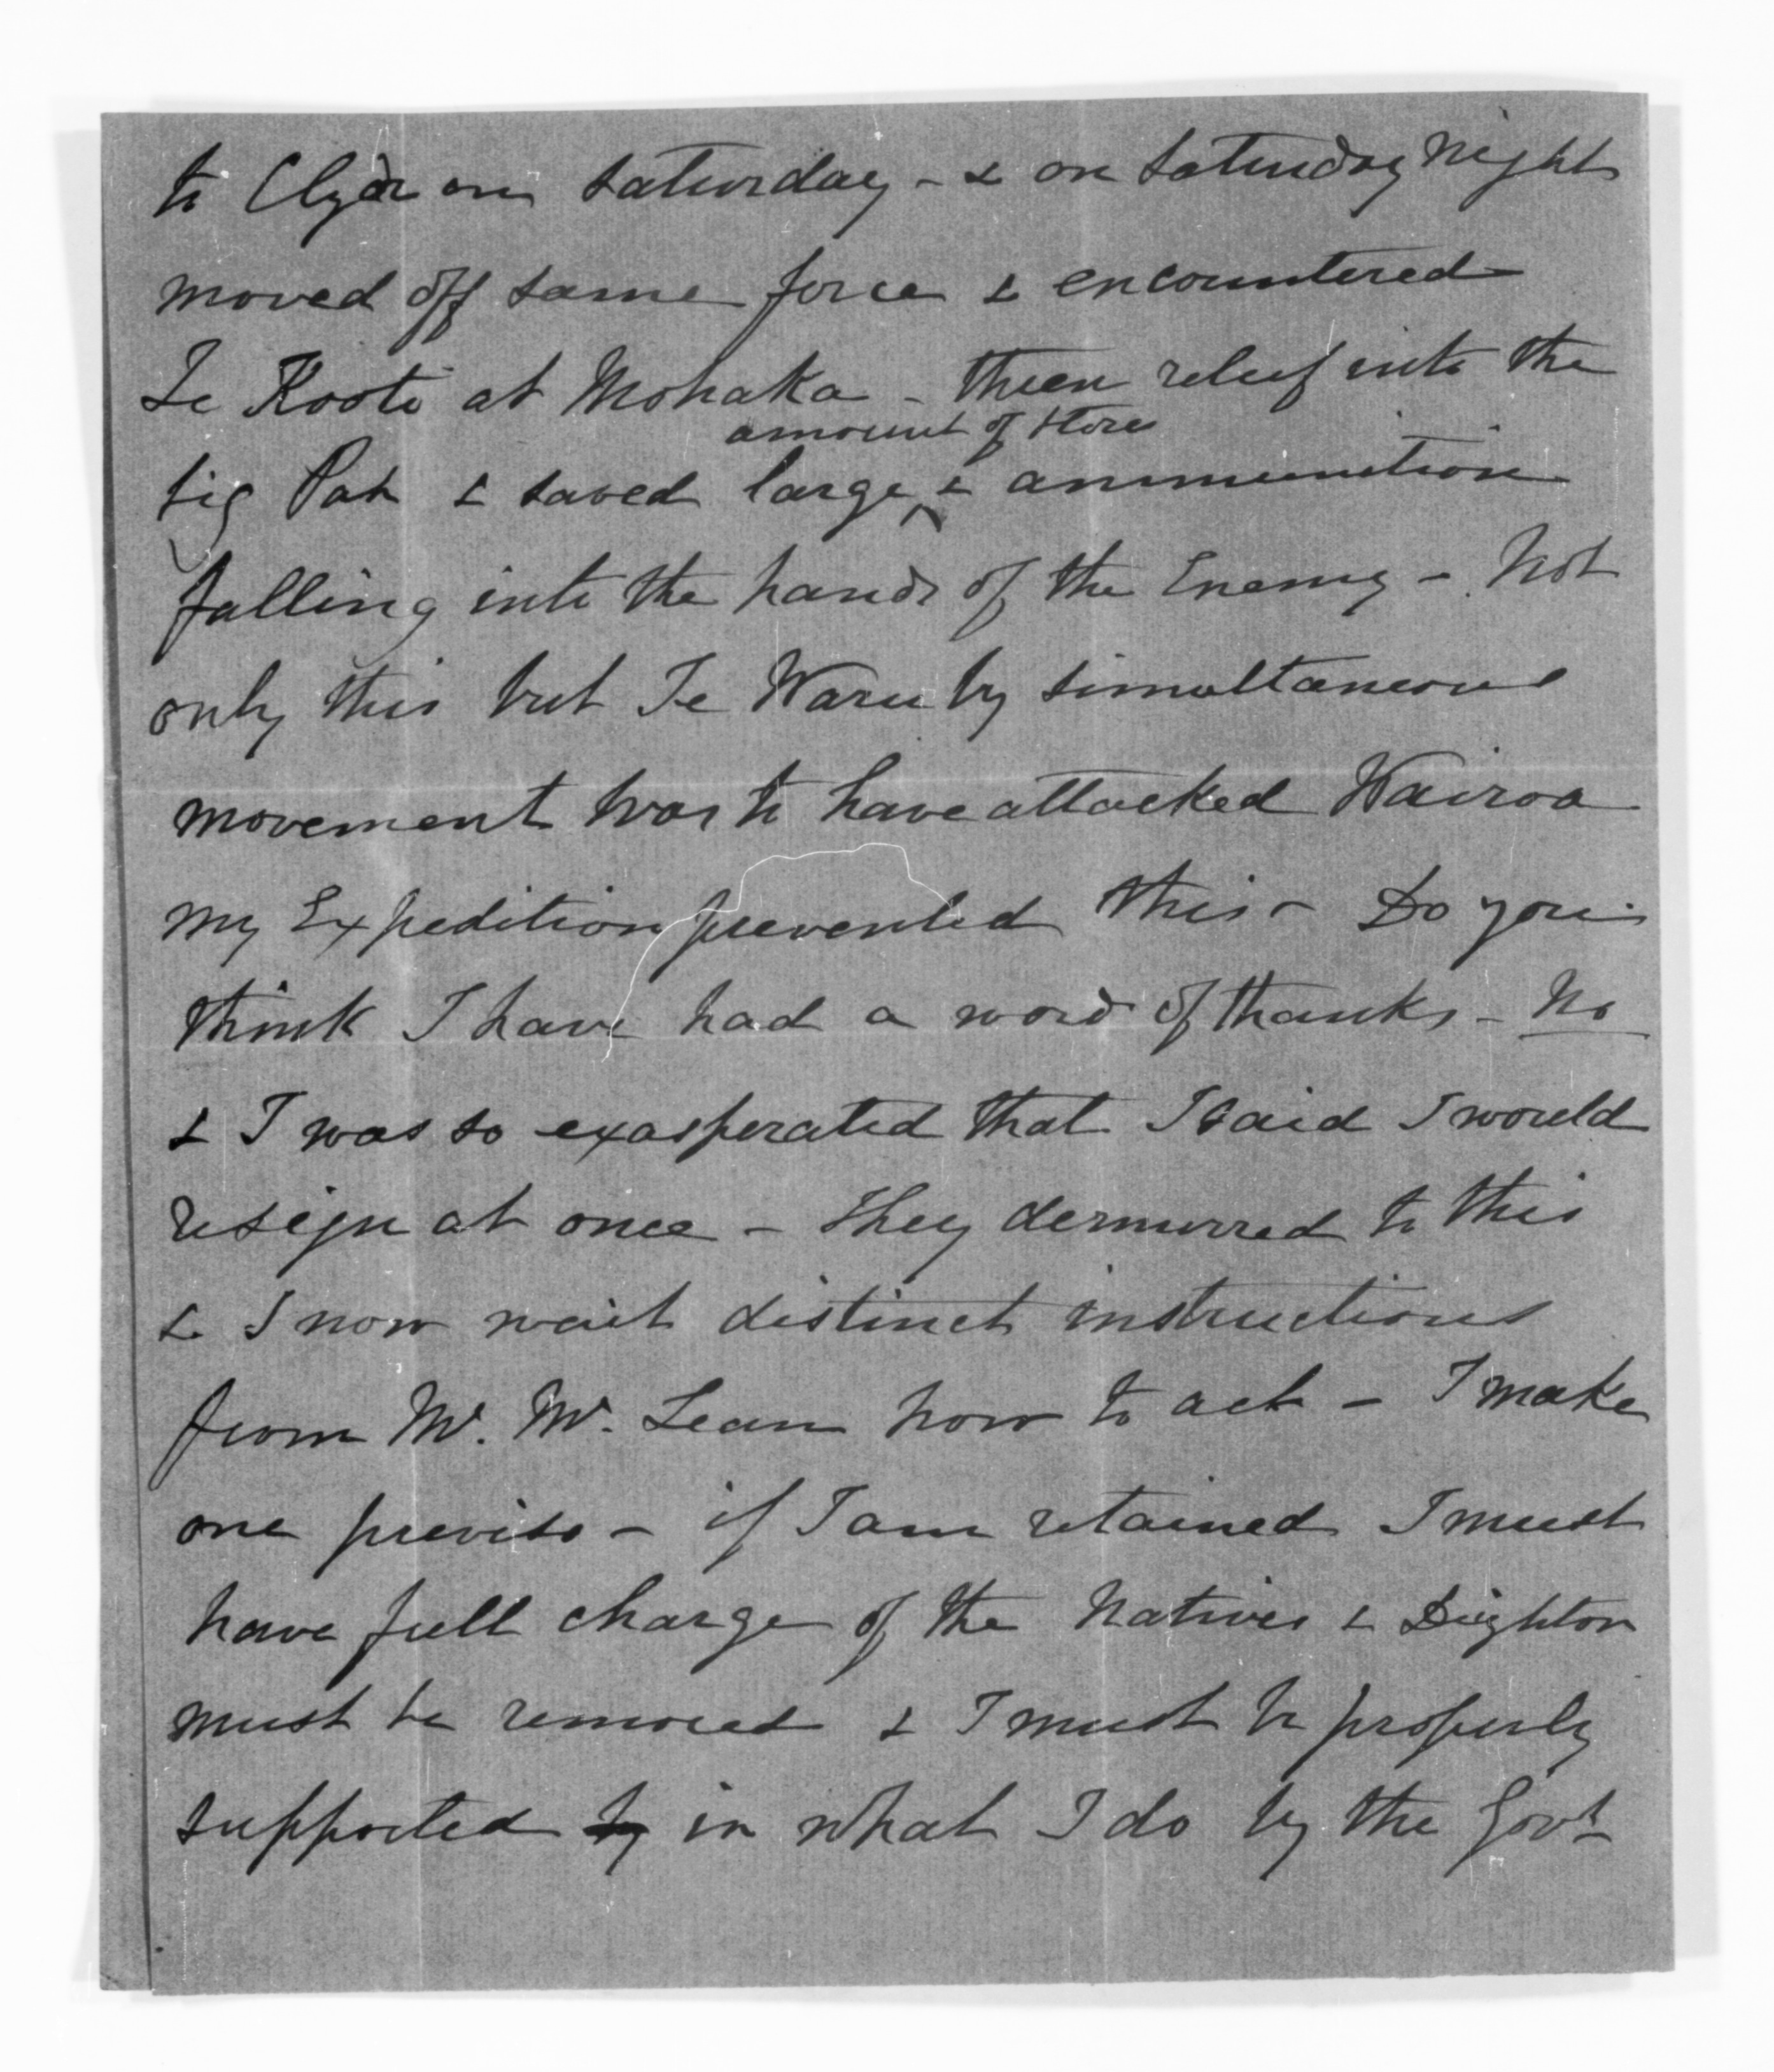 to Clyde on Saturday - & on Saturday night
moved off same force & encountered
Te Kooti at Mohaka - threw relief into the
amount of stores
big Pah & saved large & ammunition
falling into the hands of the Enemy - Not
only this but Te Waru by simultaneous
movement was to have attacked Wairoa
my Expedition prevented this - Do you
think I have had a word of thanks - No
& I was so exasperated that I said I would
resign at once - They demurred to this
& I now wait distinct instructions
from Mr. Mc. Lean how to act - I make
one proviso - if I am retained I must
have full charge of the Natives & Deighton
must be removed & I must be properly
supported by in what I do by the Govt